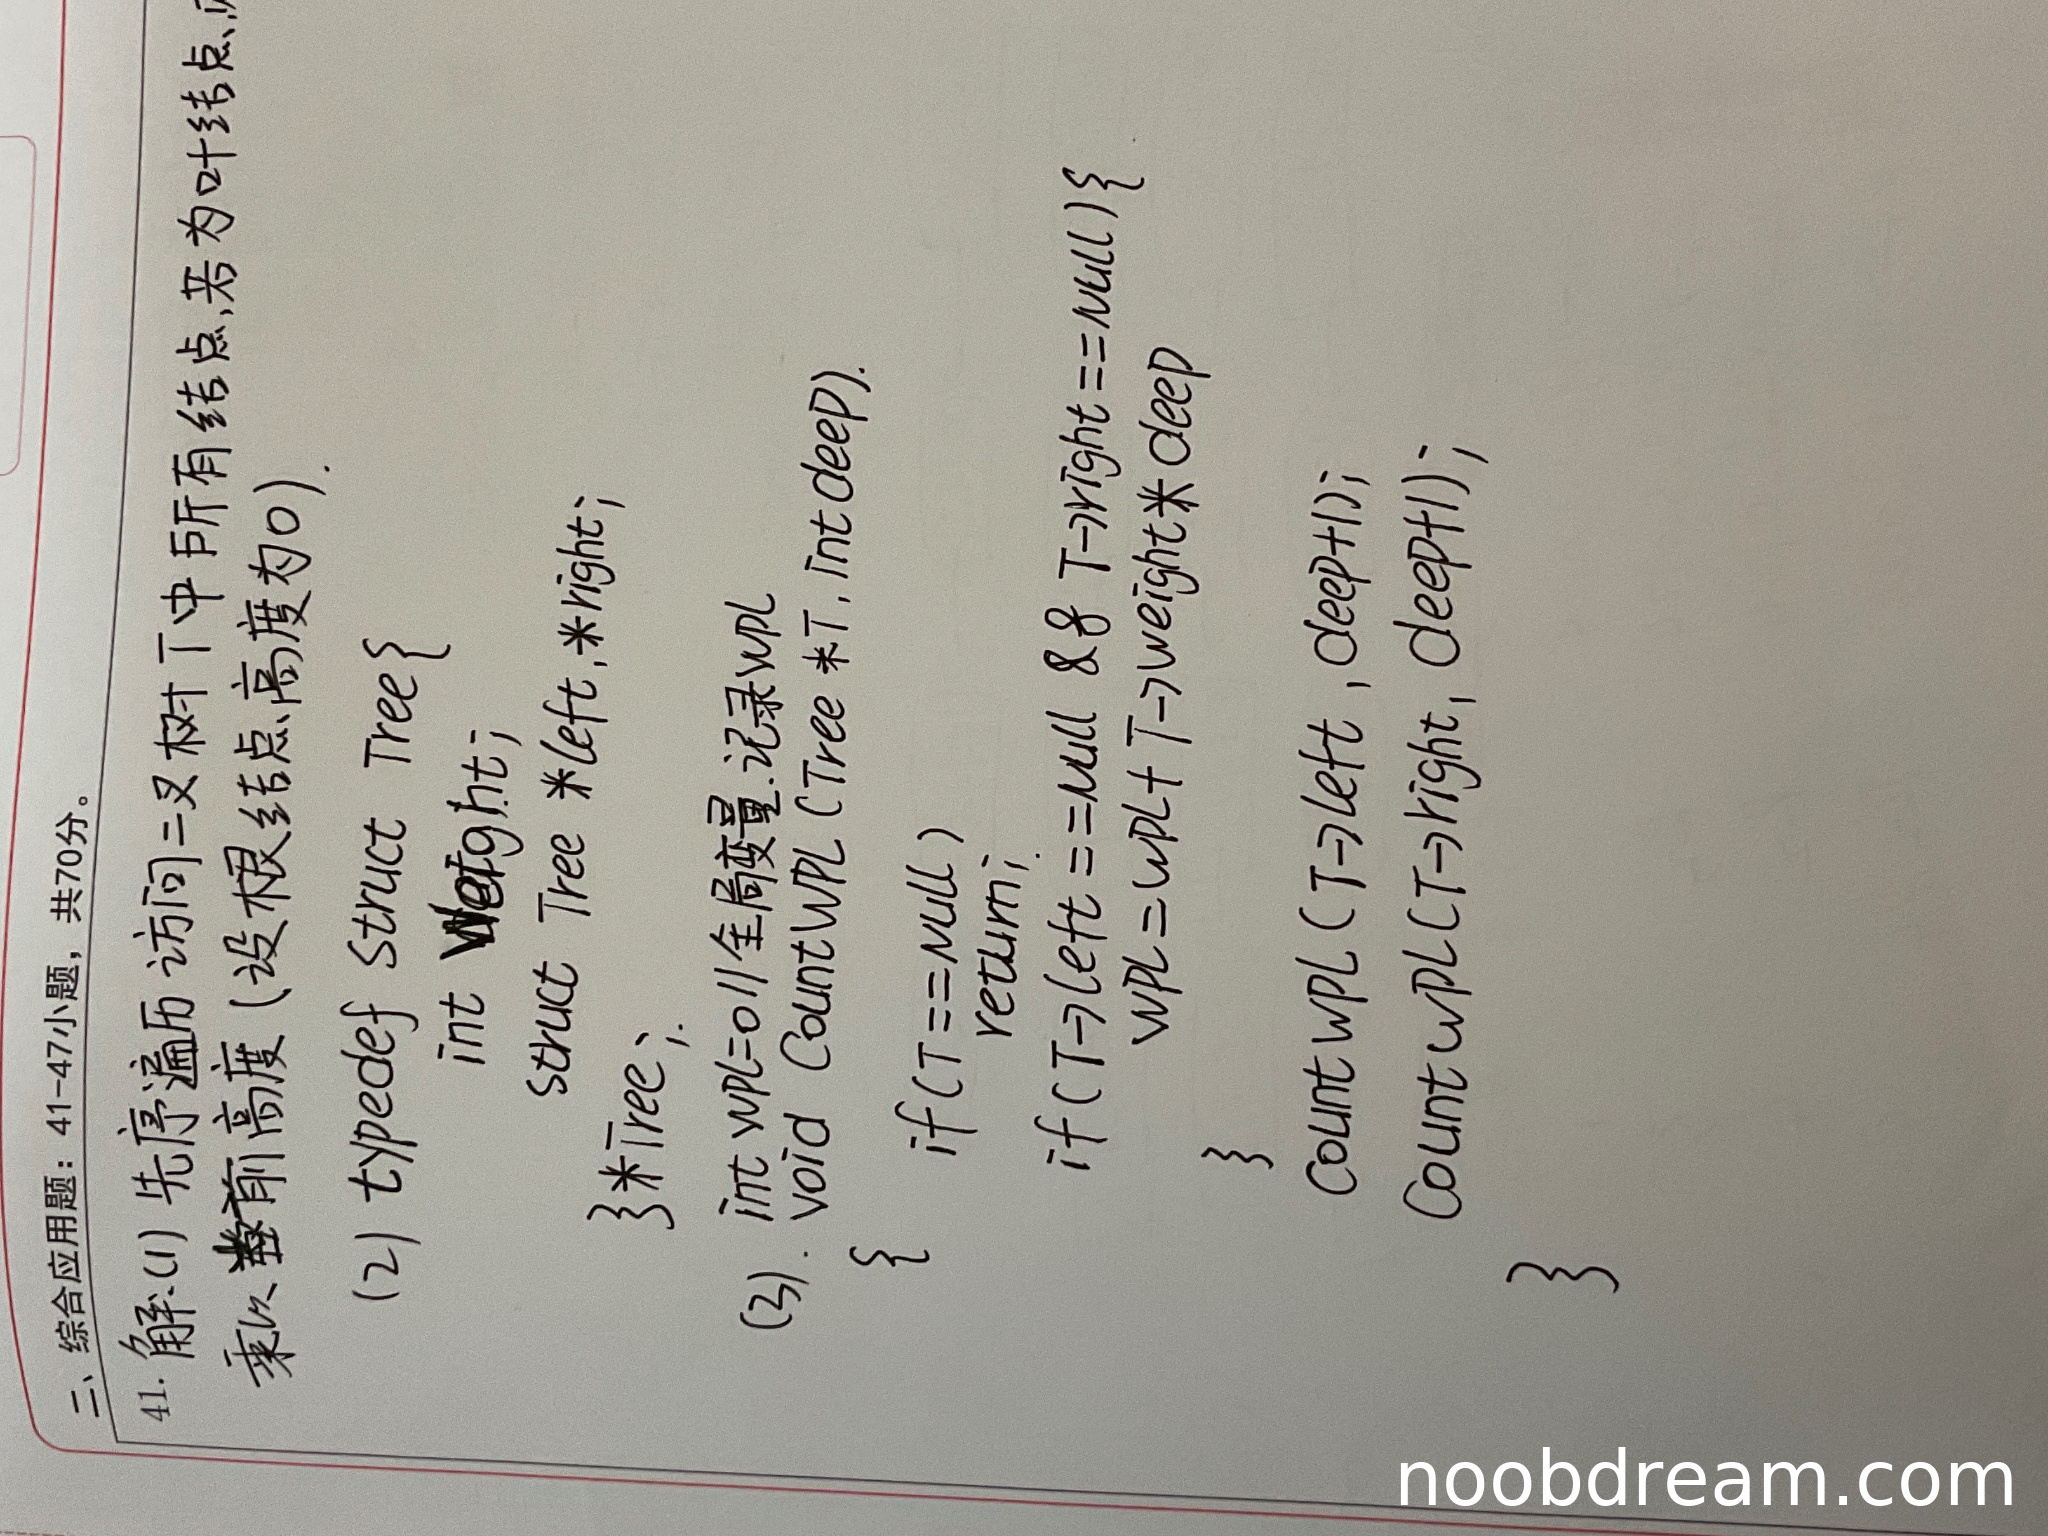 二、综合应用题：41-47小题，共70分。
41. 解.(1) 先序遍历访问二叉树T中所有结点,若为叶结点,
乘以当前高度(设根结点高度为0).
(2) typedef struct Tree{
int Weight;
struct Tree *left,*right;
}*Tree;
int wpl=0//全局变量.记录wpl
(3). void CountWPL(Tree *T, int deep).
{
if(T==null)
return;
if(T->left==null && T->right==null){
wpl=wpl+T->weight*deep
}
Countwpl(T->left,deep+1);
Countwpl(T->right,deep+1);
}
noobdream.com